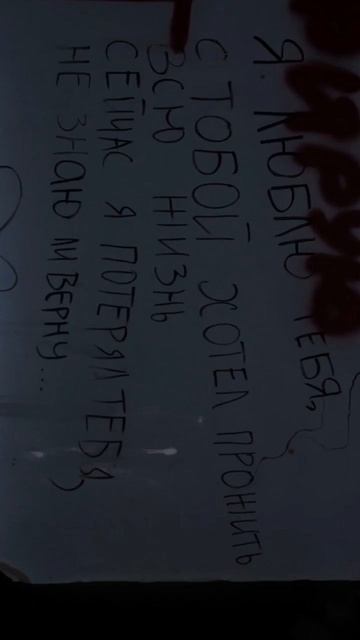 Я ЛЮБЛЮ ТЕБЯ,
С ТОБОЙ ХОТЕЛ ПРОЖИТЬ
ВСЮ ЖИЗНЬ
СЕЙЧАС Я ПОТЕРЯЛ ТЕБЯ,
НЕ ЗНАЮ И ВЕРНУ...